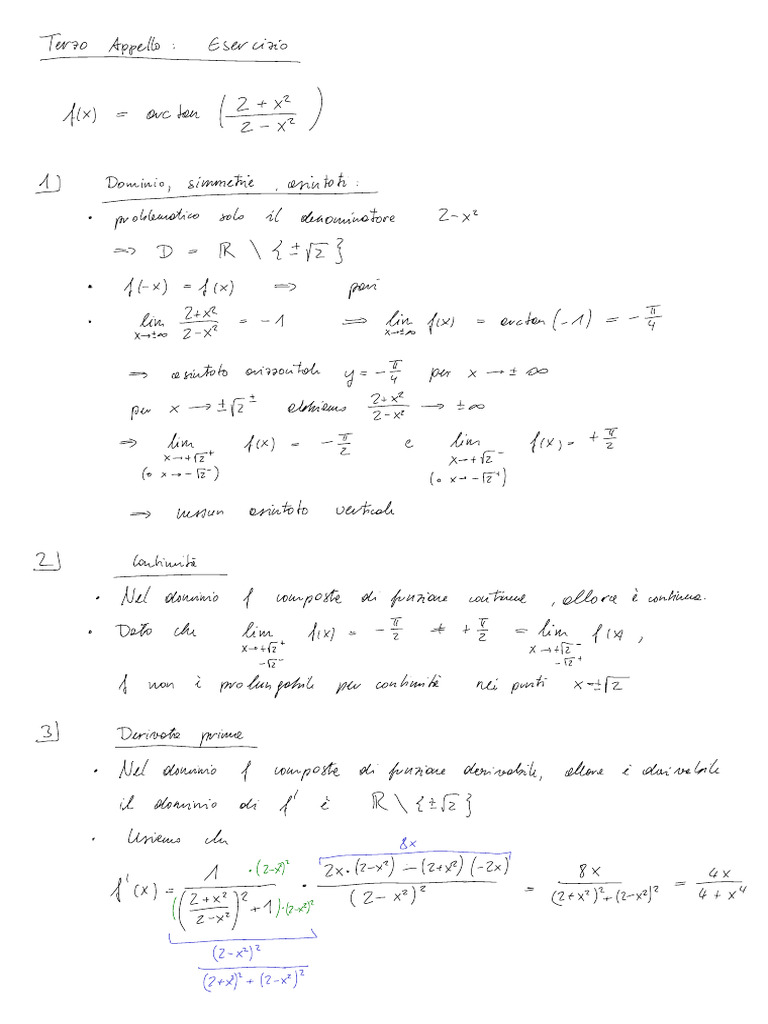 Terzo Appello: Esercizio
f(x) = arctan ( (2 + x²) / (2 - x²) )
1) Dominio, simmetrie, asintoti:
• problematico solo il denominatore 2-x²
⟹ D = ℝ \ {±√2}
• f(-x) = f(x) ⟹ pari
• lim x→±∞ (2+x²)/(2-x²) = -1 ⟹ lim x→±∞ f(x) = arctan(-1) = -π/4
⟹ asintoto orizzontale y = -π/4 per x → ±∞
per x → ±√2^± abbiamo (2+x²)/(2-x²) → ±∞
⟹ lim x→+√2⁺ (o x→-√2⁻) f(x) = -π/2 e lim x→+√2⁻ (o x→-√2⁺) f(x) = +π/2
⟹ nessun asintoto verticale
2) Continuità
• Nel dominio f composta di funzione continue, allora è continua.
• Dato che lim x→+√2⁺ -√2⁻ f(x) = -π/2 ≠ +π/2 = lim x→+√2⁻ -√2⁺ f(x,
f non è prolungabile per continuità nei punti x=±√2
3) Derivata prima
• Nel dominio f composta di funzione derivabile, allora è derivabile
il dominio di f' è ℝ \ {±√2}
• Usiamo che
8x
f'(x) = 1 ·(2-x²)² / (((2+x²)/(2-x²))² + 1)·(2-x²)² · (2x·(2-x²) - (2+x²)(-2x)) / (2-x²)² = 8x / ((2+x²)²+(2-x²)²) = 4x / (4+x⁴)
(2-x²)² / ((2+x²)² + (2-x²)²)